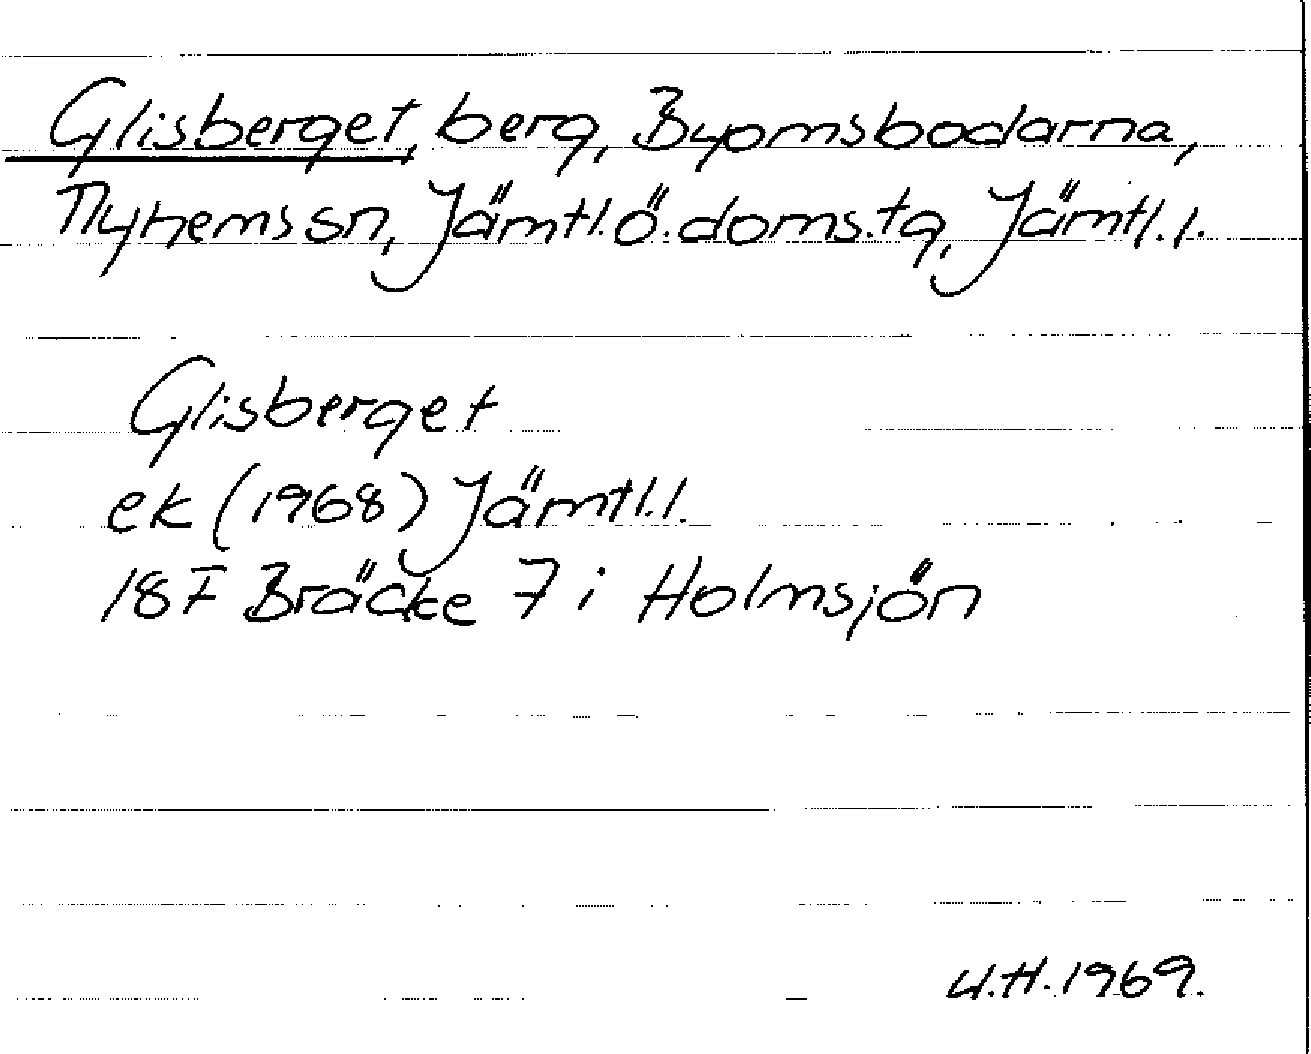 Glisberget, berg, Byomsbodarna,
Nyhems sn, Jämtl. ö. doms. tg, Jämtl. l.
Glisberget
ek (1968) Jämtl. l.
18 F Bräcke 7 i Holmsjön
U.H. 1969.